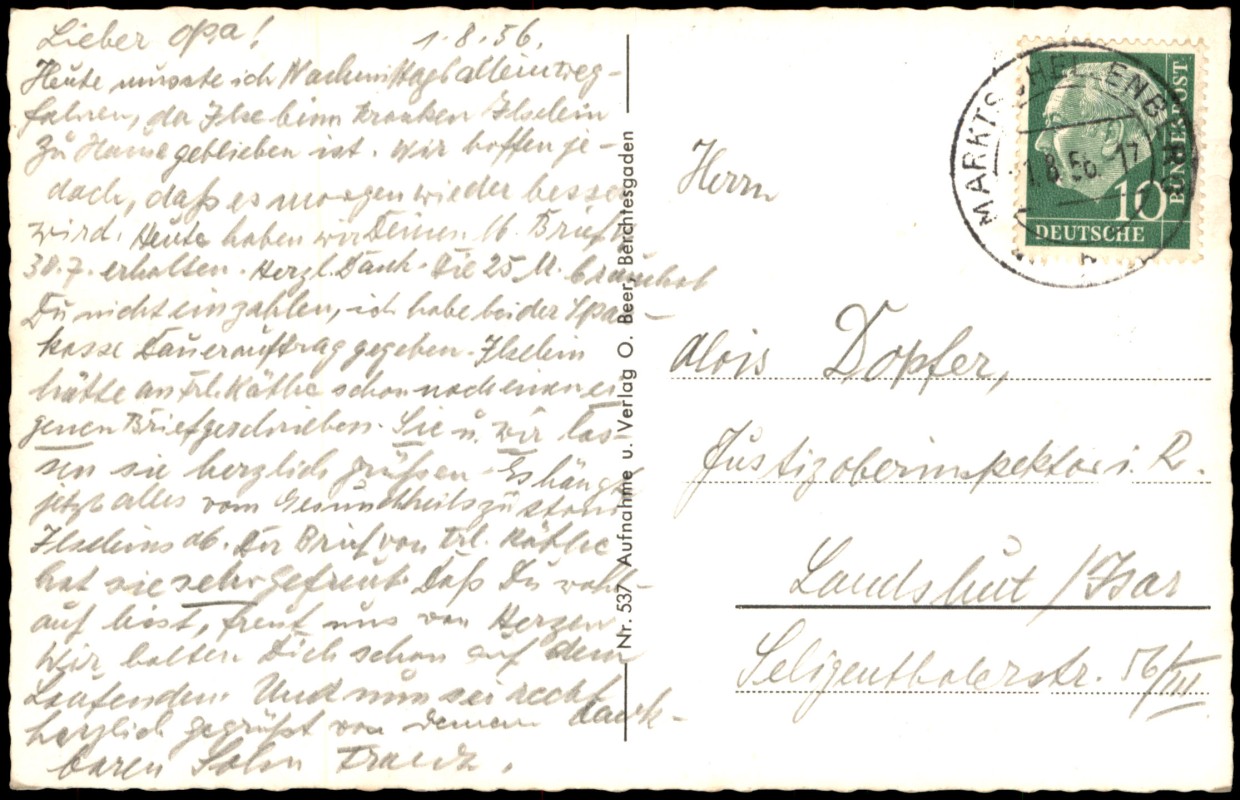 Lieber Opa!
1.8.56.
Heute musste ich Nachmittags allein weg-
fahren, da Ilse beim kranken Ilselein
zu Hause geblieben ist. Wir hoffen je-
doch, daß es morgen wieder besser
wird. Heute haben wir Deinen 16. Brief v.
30.7. erhalten. Herzl. Dank. Die 25 M. brauchst
Du nicht einzahlen, ich habe bei der Spar-
kasse Dauerauftrag gegeben. Ilselein
hätte an Frl. Käthe schon noch einen ei-
genen Brief geschrieben. Sie u. wir las-
sen sie herzlich grüßen. Es hängt
jetzt alles vom Gesundheitszustand
Ilseleins ab. Der Brief von Frl. Käthe
hat sie sehr gefreut. Daß Du wohl-
auf bist, freut uns von Herzen
Wir halten Dich schon auf dem
Laufenden. Und nun sei recht
herzlich gegrüßt von Deinem dank-
baren Sohn
Nr. 537 Aufnahme u. Verlag O. Beer, Berchtesgaden
MARKTSCHELLENBERG
1.8.56. 17
10
DEUTSCHE
BUNDESPOST
Herrn
Alois Dopfer,
Justizoberinspektor i. R.
Landshut / Isar
Seligenthalerstr. 56/III